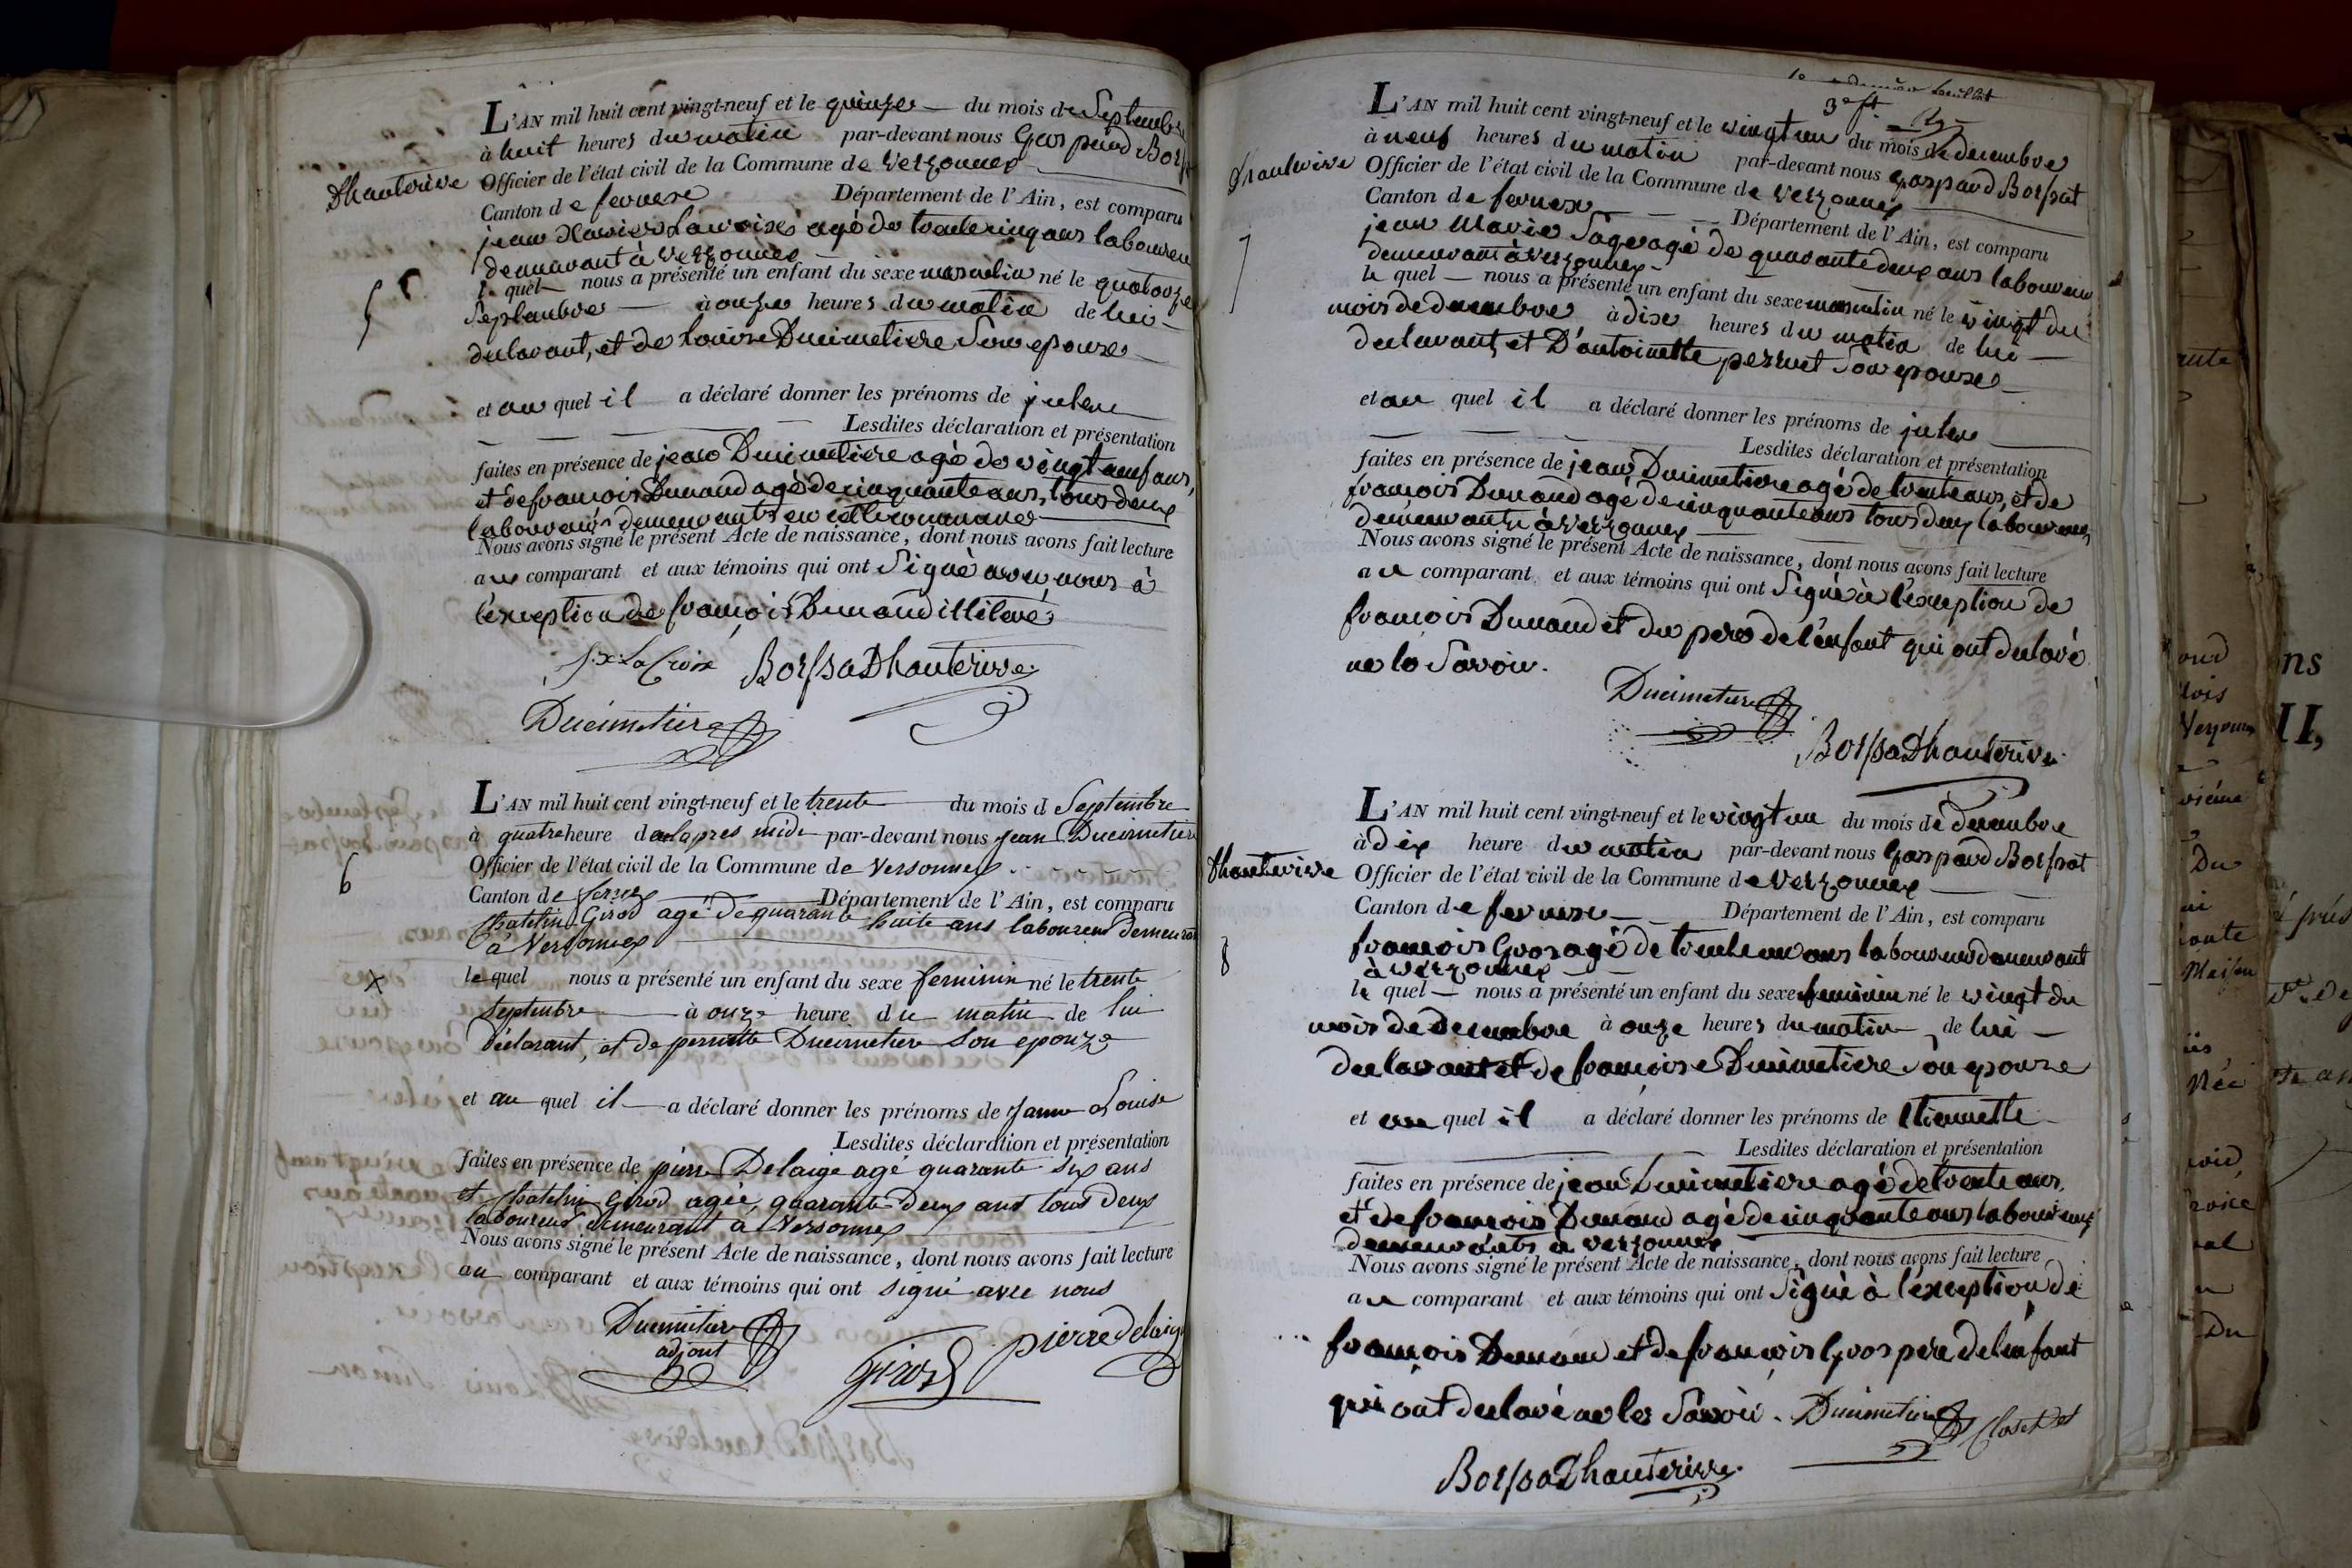 L'AN mil huit cent vingt-neuf et le quinze du mois de Septembre
à huit heures du matin par-devant nous Gaspard Borssat
Dhauterive Officier de l'état civil de la Commune de Versonnex
Canton de fernex Département de l'Ain, est comparu
jean Xavier Lacroix agé de trente cinq ans laboureur
demeurant à Versonnex
5
le quel nous a présenté un enfant du sexe masculin né le quatorze
Septembre à onze heures du matin de lui
declarant, et de Louise Ducimetiere Son epouse
et au quel il a déclaré donner les prénoms de julien
Lesdites déclaration et présentation
faites en présence de jean Ducimetiere agé de vingt neuf ans,
et de francois Dunand agé de cinquante ans, tous deux
laboureurs demeurants en cette commune
Nous avons signé le présent Acte de naissance, dont nous avons fait lecture
au comparant et aux témoins qui ont Signé avec nous à
l'exception de françois Dunand illiteré
j. x. LaCroix BorssaDhauterive
Ducimetiere
L'AN mil huit cent vingt-neuf et le trente du mois d Septembre
à quatre heure de lapres midi par-devant nous jean Ducimetiere
Officier de l'état civil de la Commune de Versonnex
6
Canton de fernex Département de l'Ain, est comparu
Chatelin Girod agé de quarante huite ans laboureur demeurant
à Versonnex
X
le quel nous a présenté un enfant du sexe feminin né le trente
Septembre à onze heure du matin de lui
Déclarant, et de pernette Ducimetiere son epouze
et au quel il a déclaré donner les prénoms de Janne Louise
Lesdites déclaration et présentation
faites en présence de pierre Delaige agé quarante six ans
et Chatelin Girod agée, quarante deux ans tous deux
laboureur demeurant à Versonnex
Nous avons signé le présent Acte de naissance, dont nous avons fait lecture
au comparant et aux témoins qui ont signé avec nous
Ducimetiere
adjoint
Girod pierre delaige
3e ft
L'AN mil huit cent vingt-neuf et le vingt un du mois de decembre
à neuf heures du matin par-devant nous gaspard Borssat
Dhauterive Officier de l'état civil de la Commune de Versonnex
Canton de fernex Département de l'Ain, est comparu
jean Marie Sage agé de quarante deux ans laboureur
demeurant à Versonnex
7
le quel nous a présenté un enfant du sexe masculin né le vingt du
mois de decembre à dix heures du matin de lui
declarant, et D'antoinette perruet Son epouse
et au quel il a déclaré donner les prénoms de julien
Lesdites déclaration et présentation
faites en présence de jean Ducimetiere agé de trente ans, et de
françois Dunand agé de cinquante ans tous deux laboureurs
demeurants à Versonnex
Nous avons signé le présent Acte de naissance, dont nous avons fait lecture
au comparant et aux témoins qui ont Signé à l'exception de
françois Dunand et du pere de l'enfant qui ont declaré
ne le Savoir.
Ducimetiere
BorssaDhauterive
L'AN mil huit cent vingt-neuf et le vingt un du mois de decembre
à dix heure du matin par-devant nous Gaspard Borssat
Dhauterive Officier de l'état civil de la Commune de Versonnex
Canton de fernex Département de l'Ain, est comparu
8
françois Gros agé de trente un ans laboureur demeurant
à Versonnex
le quel nous a présenté un enfant du sexe feminin né le vingt du
mois de Decembre à onze heures du matin de lui
declarant et de francoise Ducimetiere Son epouse
et au quel il a déclaré donner les prénoms de Etiennette
Lesdites déclaration et présentation
faites en présence de jean Ducimetiere agé de trente ans,
et de francois Dunand agé de cinquante ans laboureurs
demeurants à Versonnex
Nous avons signé le présent Acte de naissance, dont nous avons fait lecture
au comparant et aux témoins qui ont Signé à l'exception de
françois Dunand et de françois Gros pere de l'enfant
qui ont declaré ne les Savoir. Ducimetiere
BorssaDhauterive